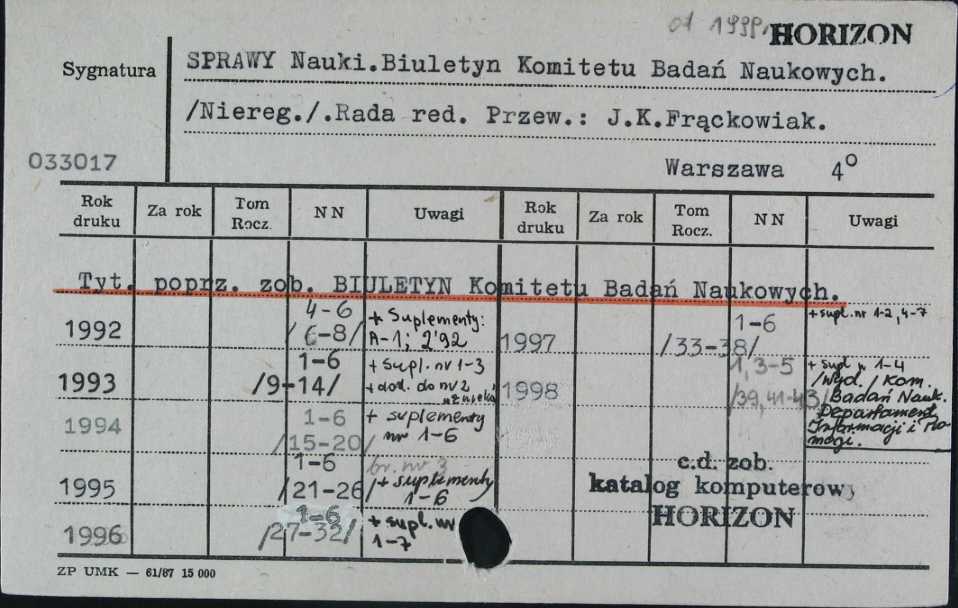 od 1999r. HORIZON
Sygnatura
SPRAWY Nauki.Biuletyn Komitetu Badań Naukowych.
/Niereg./.Rada red. Przew.: J.K.Frąckowiak.
033017
Warszawa 4°
Rok druku Za rok Tom Rocz. NN Uwagi Rok druku Za rok Tom Rocz. NN Uwagi
Tyt. poprz. zob. BIULETYN Komitetu Badań Naukowych.
1992 4-6 /6-8/ + Suplementy: A-1; 2'92
1993 1-6 /9-14/ + Supl. nr 1-3 + dod. do nr 2
1994 1-6 /15-20/ + suplementy nr 1-6
1995 1-6 /21-26/ br. nr 3 /+ suplementy 1-6
1996 1-6 /27-32/ + supl. nr 1-7
1997 1-6 /33-38/ + supl. nr 1-2, 4-7
1998 1, 3-5 /39, 41-43/ + supl 1-4 /Wyd./ Kom. Badań Nauk. Departament Informacji i Promocji.
c.d. zob.
katalog komputerowy
HORIZON
ZP UMK — 61/87 15 000